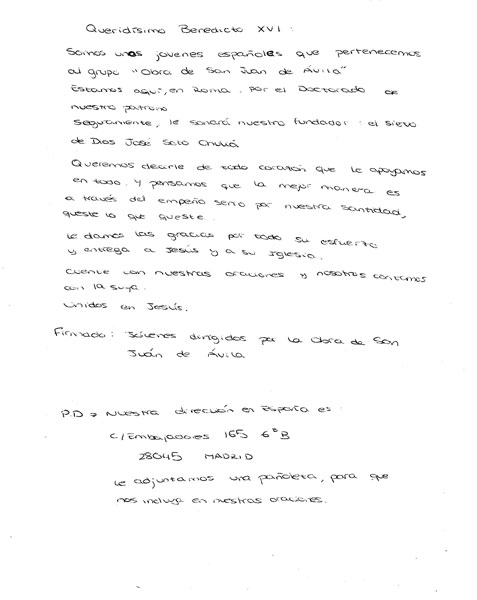 Queridísimo Benedicto XVI:
Somos unos jovenes españoles que pertenecemos
al grupo "Obra de San Juan de Ávila"
Estamos aquí, en Roma, por el Doctorado de
nuestro patrono
Seguramente, le sonará nuestro fundador: el siervo
de Dios José Soto Chuliá.
Queremos decirle de todo corazón que le apoyamos
en todo. Y pensamos que la mejor manera es
a través del empeño serio por nuestra santidad,
queste lo que queste.
Le damos las gracias por todo su esfuerzo
y entrega a Jesús y a su Iglesia.
Cuente con nuestras oraciones y nosotros contamos
con la suya.
Unidos en Jesús.
Firmado: Jóvenes dirigidos por la Obra de San
Juán de Ávila
P.D → Nuestra dirección en España es:
C/Embajadores 165 6º B
28045 MADRID
Le adjuntamos una pañoleta, para que
nos incluya en nuestras oraciones.